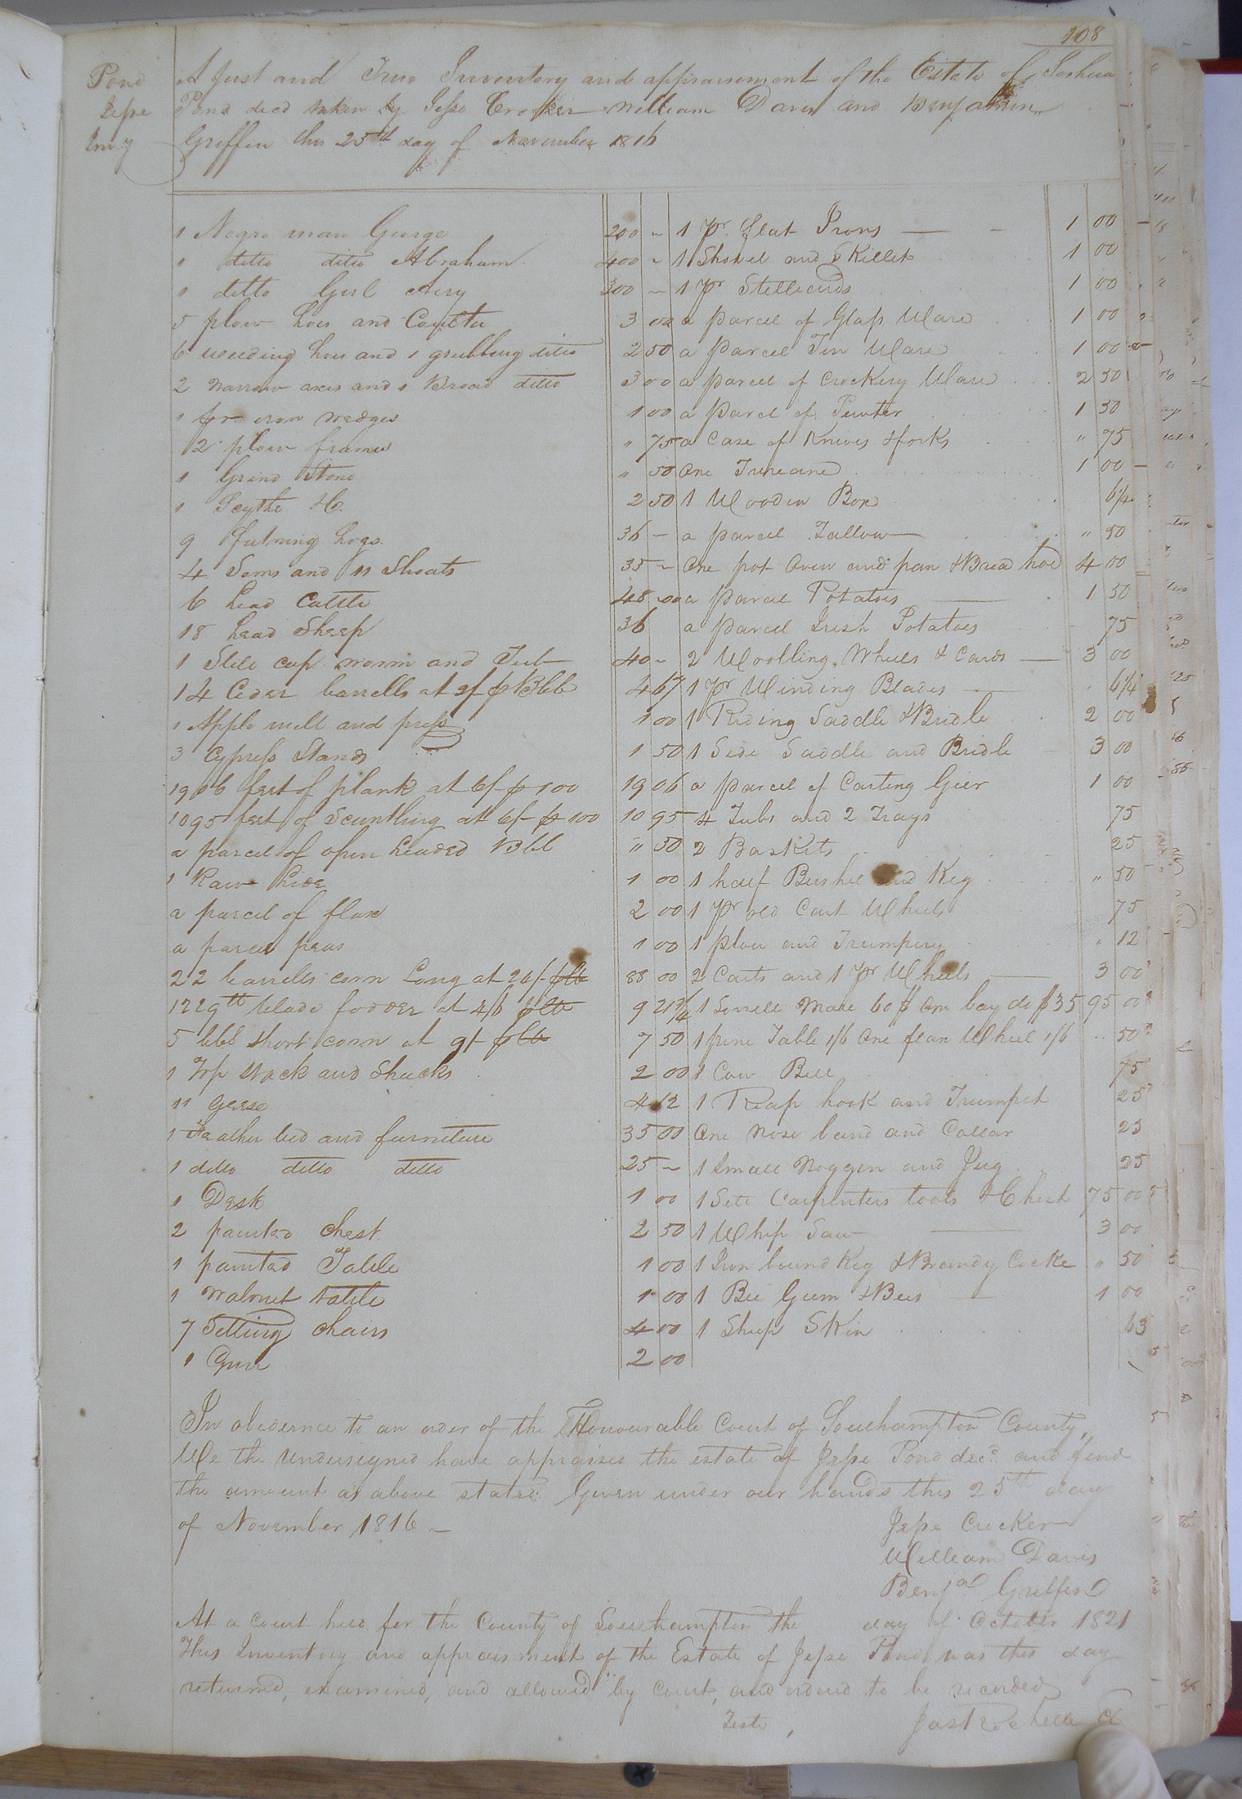 108
Pond
Jesse
Invy
A just and True Inventory and appraisement of the Estate of Joshua
Pond decd taken by Jesse Crocker William Davis and Benjamin
Griffin this 25th day of November 1816
1 Negro man George 200 -
1 ditto ditto Abraham 400 -
1 ditto Girl 300 -
5 plow hoes and Coulter 3 00
6 weeding hoes and 1 grubbing ditto 2 50
2 narrow axes and 1 Broad ditto 3 00
1 pr iron wedges 1 00
2 plow frames " 75
1 Grind Stone " 50
1 Scythe &c 2 50
9 fatning hogs 36 -
4 Sows and 11 Shoats 35 -
6 head Cattle 48 00
18 head Sheep 36
1 Still cap worm and Tub 40 -
14 Cider barrells at 2/ p Bbl 4 67
1 Apple mill and press 1 00
3 Cypress Stands 1 50
1906 feet of plank at 6/ p 100 19 06
1095 feet of Scantling at 6/- p 100 10 95
a parcel of open headed Bbl " 50
1 Raw hide 1 00
a parcel of flax 2 00
a parcel peas 1 00
22 barrells corn Long at 24/- 88 00
1229 lb blade fodder at 4/6 9 21 3/4
5 bbl short corn at 9/- 7 50
1 Top stack and Shucks 2 00
11 Geese 4 12
1 Feather bed and furniture 35 00
1 ditto ditto ditto 25 -
1 Desk 1 00
2 painted chest 2 50
1 painted Table 1 00
1 Walnut table 1 00
7 Setting chairs 4 00
1 Gun 2 00
1 pr flat Irons 1 00
1 Shovel and Skillet 1 00
1 pr Stilliards 1 00
a parcel of Glass Ware 1 00
a parcel Tin Ware 1 00
a parcel of Crockery Ware 2 50
a parcel of Pewter 1 50
a Case of Knives & forks " 75
One 1 00
1 Wooden Box 6 1/4
a parcel Tallow " 50
One pot Oven and pan & Bread hoe 4 00
a parcel Potatoes 1 50
a parcel Irish Potatoes 75
2 Woolling Wheels & Cards 3 00
1 pr Winding Blades 6 1/4
1 Riding Saddle & Bridle 2 00
1 Side Saddle and Bridle 3 00
a parcel of Carting Geer 1 00
4 Tubs and 2 Trays 75
2 Baskets 25
1 half Bushel and Keg " 50
1 pr old Cart Wheels 75
1 plow and Trumpery " 12
2 Carts and 1 pr Wheels 3 00
1 Sorrell Mare 60$ One bay do $35 95 00
1 pine Table 1/6 One flax Wheel 1/6 50
1 Cow Bell 75
1 Reap hook and Trumpet 25
One nose band and Collar 25
1 Small Noggin and Jug 25
1 Sett Carpenters tools & Chest 75 00
1 Whip Saw 3 00
1 Iron bound Keg & Brandy Cocke " 50
1 Bee Gum & Bees 1 00
1 Sheep Skin 63
In obedience to an order of the Honourable Court of Southampton County,
We the Undersigned have appraised the estate of Jesse Pond decd and find
the amount as above stated Given under our hands this 25th day
of November 1816 -
Jesse Crocker
William Davis
Benja Griffin
At a court held for the County of Southampton the day of October 1821
This Inventory and appraisment of the Estate of Jesse Pond was this day
returned, examined, and allowed by Court, and ordered to be recorded
Teste,
Jas Rochelle Cl